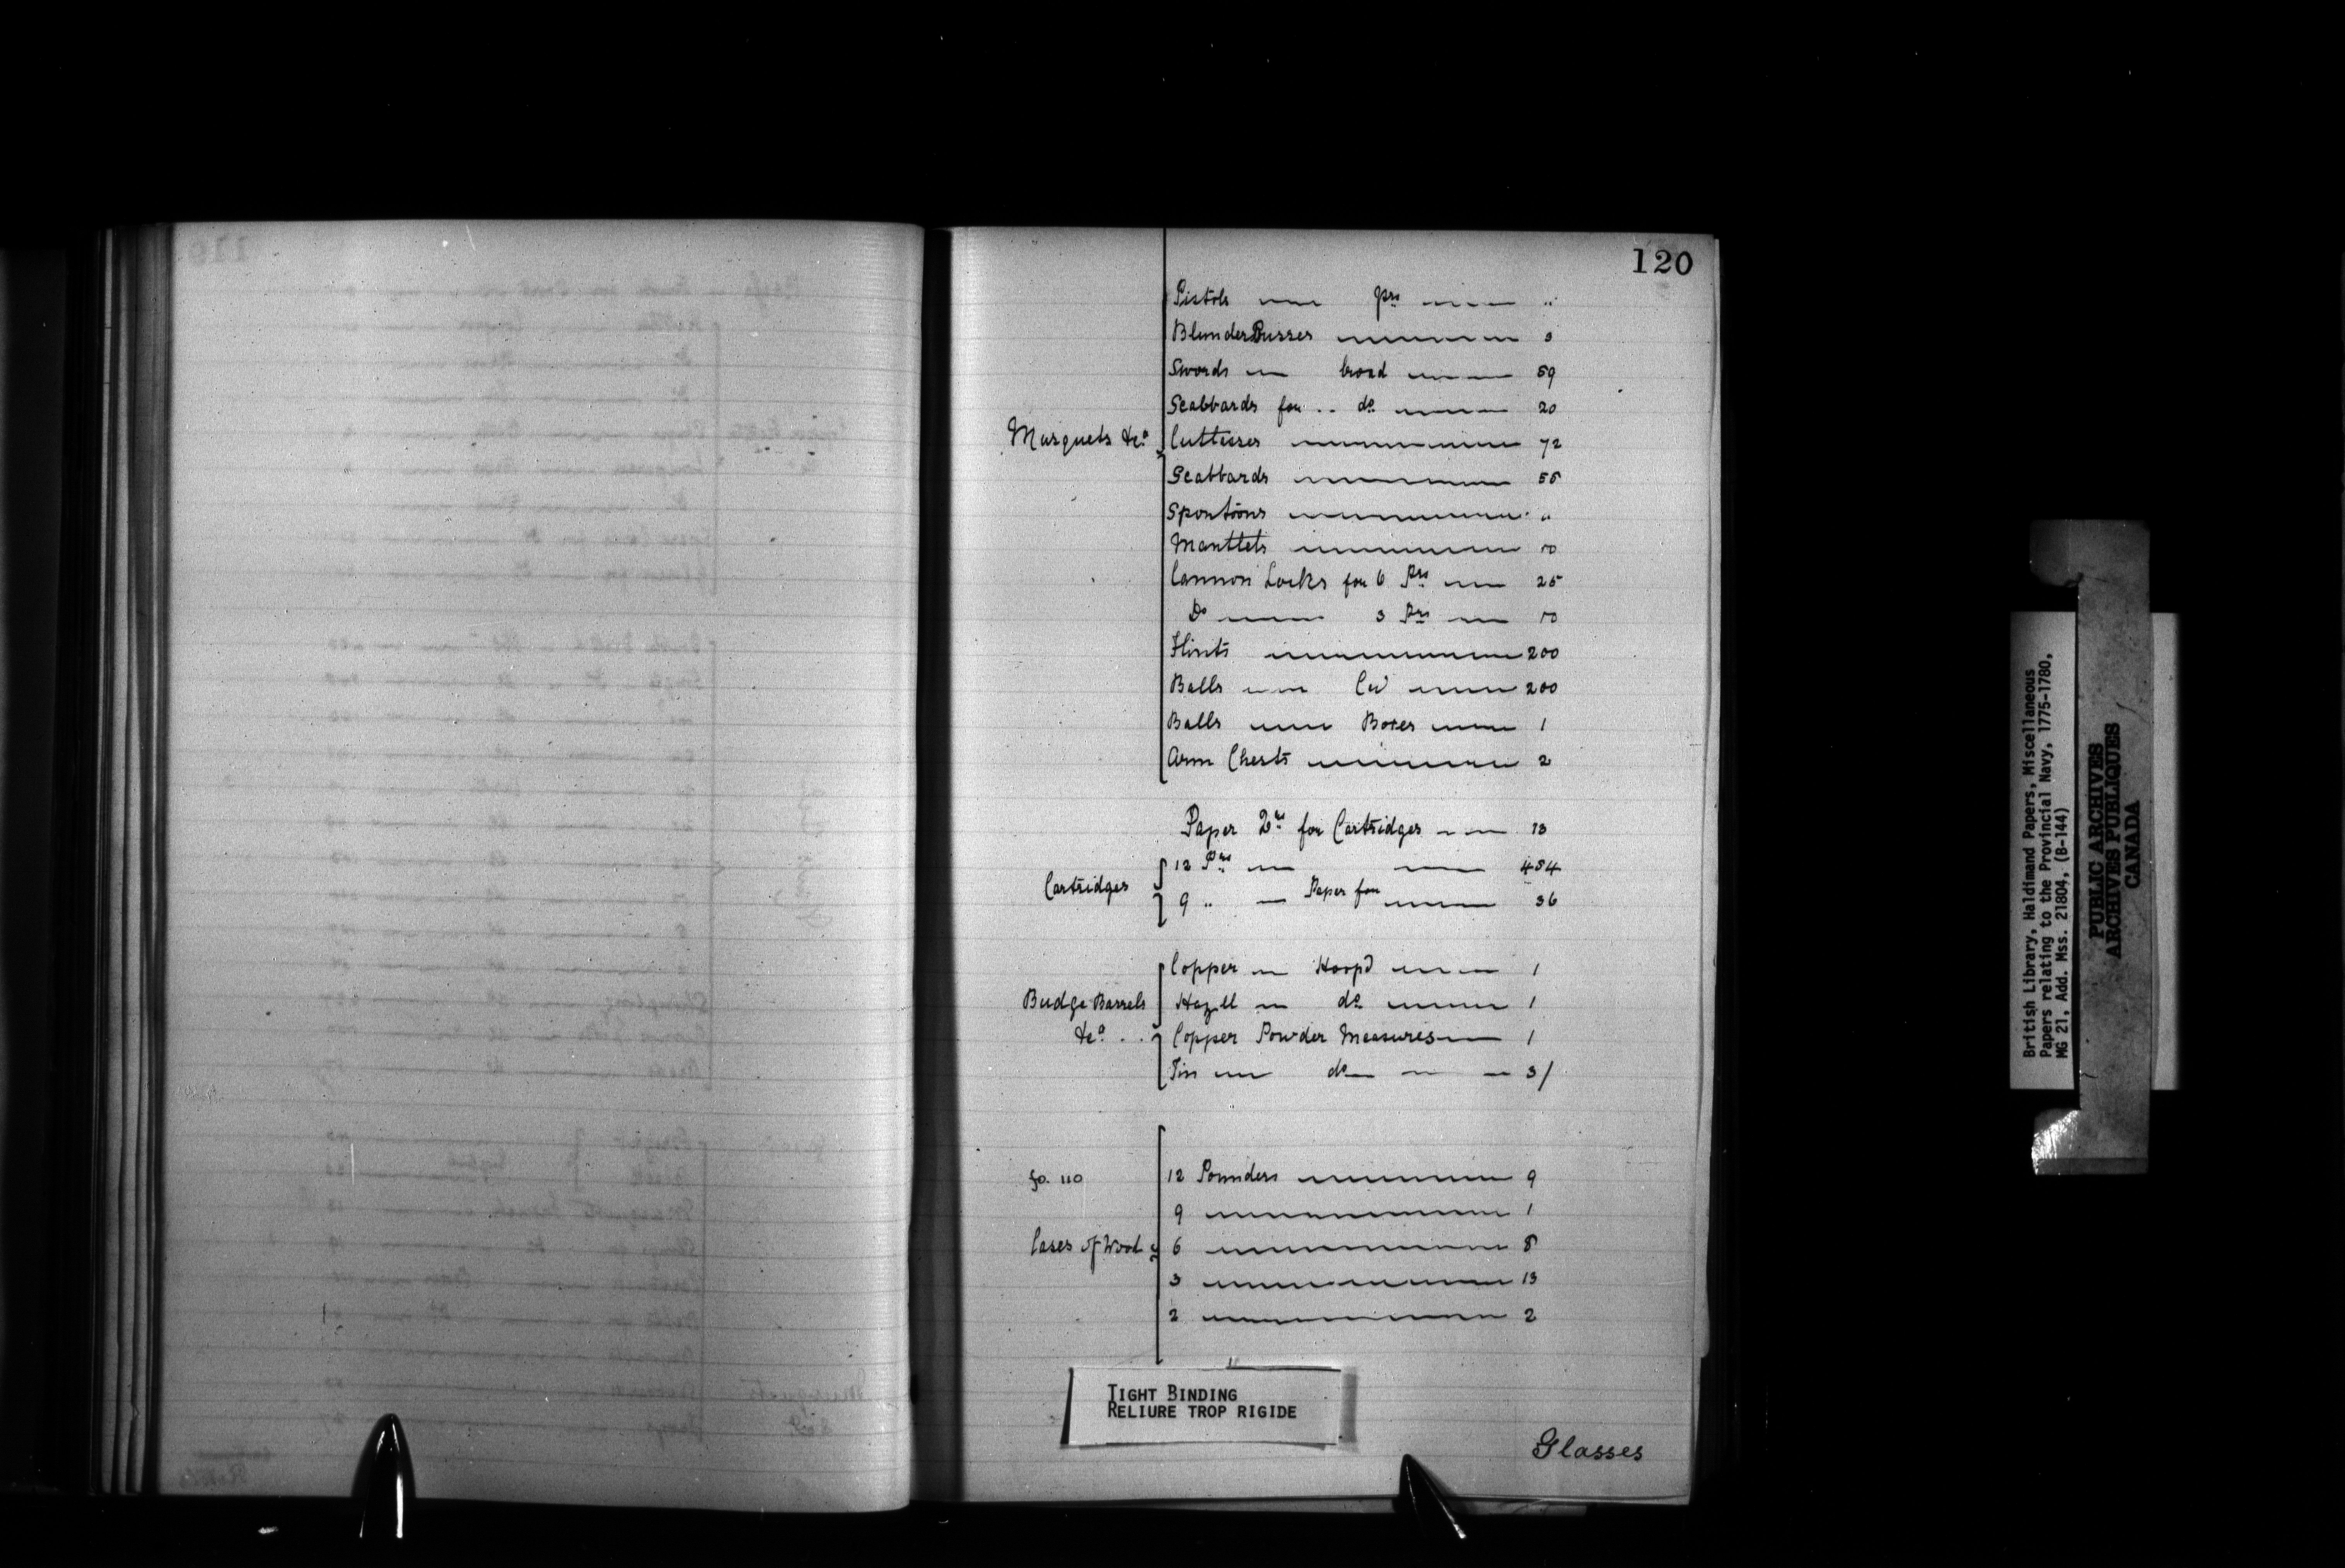 120
Pistols prs "
BlunderBusses 3
Swords broad 59
Scabbards for .. do 20
Musquets &ca Cuttesses 72
Scabbards 55
Spontoons "
Manttets 10
Cannon Locks for 6 Prs 25
Do 3 Prs 10
Flints 200
Balls Cwt 200
Balls Boxes 1
Arm Chests 2
Paper Qrs for Cartridges 13
12 Prs 484
Cartridges
9 " Paper for 36
Copper Hoopd 1
Budge Barrels Hazell do 1
&ca . . Copper Powder Measures 1
Tin do 3/
fo. 110 12 Pounders 9
9 1
Cases of Wood 6 8
3 13
2 2
TIGHT BINDING
RELIURE TROP RIGIDE
Glasses
British Library, Haldimand Papers, Miscellaneous
Papers relating to the Provincial Navy, 1775-1780,
MG 21, Add. Mss. 21804, (B-144)
PUBLIC ARCHIVES
ARCHIVES PUBLIQUES
CANADA